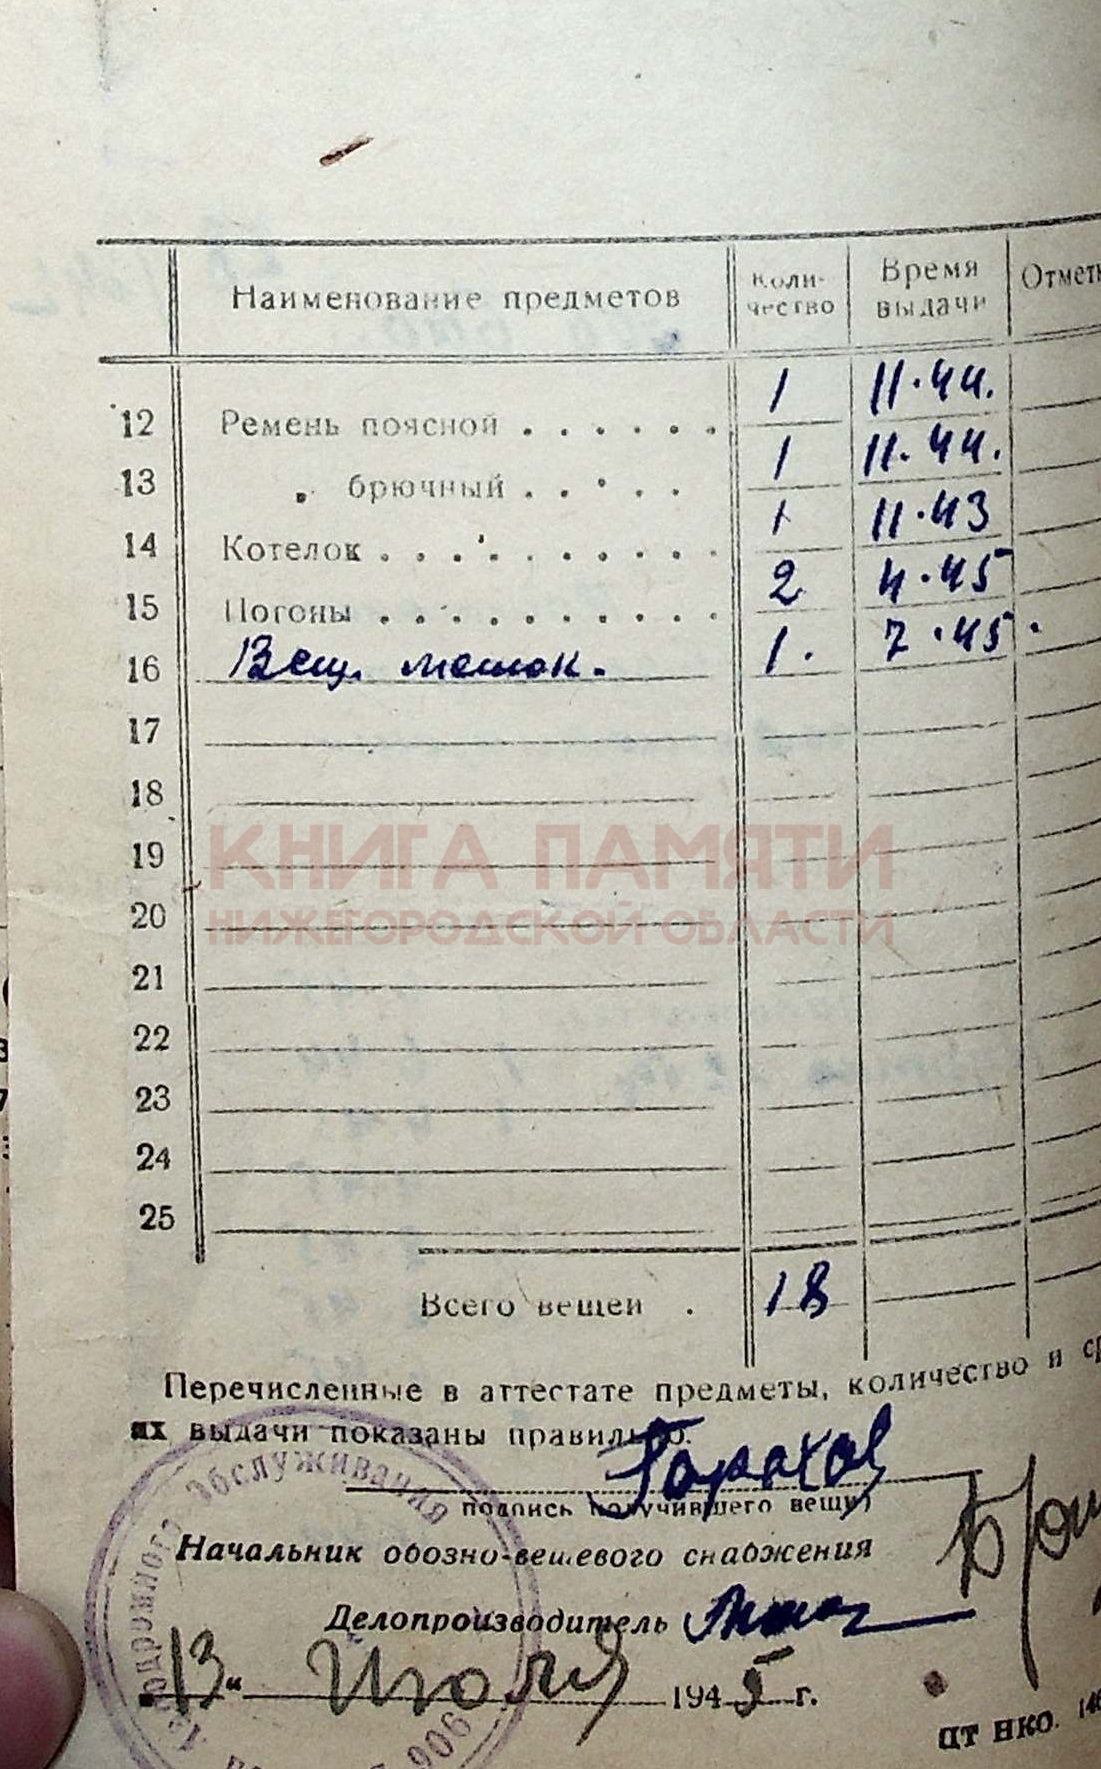 Наименование предметов Коли- Время Отметк
чество выдачи
12 Ремень поясной . . . . . . 1 11.44.
13 „ брючный . . . . . 1 11.44.
14 Котелок . . . . . . . . . . 1 11.43
15 Погоны . . . . . . . . . . 2 4.45
16 Вещ. мешок. 1. 7.45.
17
18
19
КНИГА ПАМЯТИ
20
НИЖЕГОРОДСКОЙ ОБЛАСТИ
21
22
23
24
25
Всего вещей . 18
Перечисленные в аттестате предметы, количество и ср
их выдачи показаны правильно.
подпись (получившего вещи)
Начальник обозно-вещевого снабжения
Делопроизводитель
„13“ Июля 1945 г.
Аэродромного Обслуживания
906
цт нко. 146